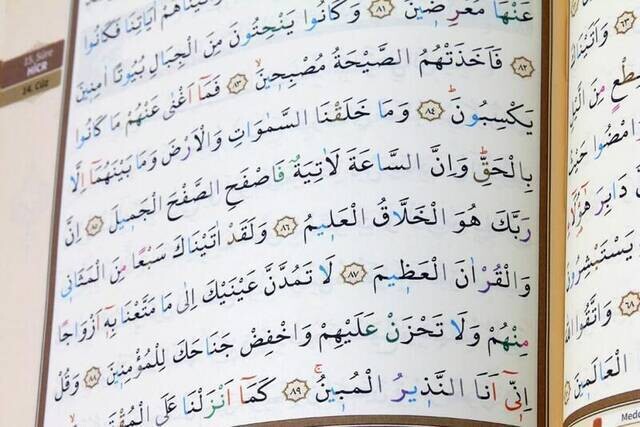 15. Sûre
HİCR
14. Cüz
اٰيَاتِنَا فَكَانُوا
عَنْهَا مُعْرِضٖينَ ﴿٨١﴾ وَكَانُوا يَنْحِتُونَ مِنَ الْجِبَالِ بُيُوتًا اٰمِنٖينَ
﴿٨٢﴾ فَاَخَذَتْهُمُ الصَّيْحَةُ مُصْبِحٖينَۙ ﴿٨٣﴾ فَمَٓا اَغْنٰى عَنْهُمْ مَا كَانُوا
يَكْسِبُونَؕ ﴿٨٤﴾ وَمَا خَلَقْنَا السَّمٰوَاتِ وَالْاَرْضَ وَمَا بَيْنَهُمَٓا اِلَّا
بِالْحَقِّؕ وَاِنَّ السَّاعَةَ لَاٰتِيَةٌ فَاصْفَحِ الصَّفْحَ الْجَمٖيلَ ﴿٨٥﴾ اِنَّ
رَبَّكَ هُوَ الْخَلَّاقُ الْعَلٖيمُ ﴿٨٦﴾ وَلَقَدْ اٰتَيْنَاكَ سَبْعًا مِنَ الْمَثَانٖي
وَالْقُرْاٰنَ الْعَظٖيمَ ﴿٨٧﴾ لَا تَمُدَّنَّ عَيْنَيْكَ اِلٰى مَا مَتَّعْنَا بِهٖٓ اَزْوَاجًا
مِنْهُمْ وَلَا تَحْزَنْ عَلَيْهِمْ وَاخْفِضْ جَنَاحَكَ لِلْمُؤْمِنٖينَ ﴿٨٨﴾ وَقُلْ
اِنّٖٓي اَنَا النَّذٖيرُ الْمُبٖينُۚ ﴿٨٩﴾ كَمَٓا اَنْزَلْنَا عَلَى
﴿٦٣﴾ وَاَتَيْنَاكَ
مِنَ الَّيْلِ
وَامْضُوا حَيْثُ
دَابِرَ هٰٓؤُ۬لَٓاءِ
يَسْتَبْشِرُونَ
﴿٦٨﴾ وَاتَّقُوا
الْعَالَمٖينَ